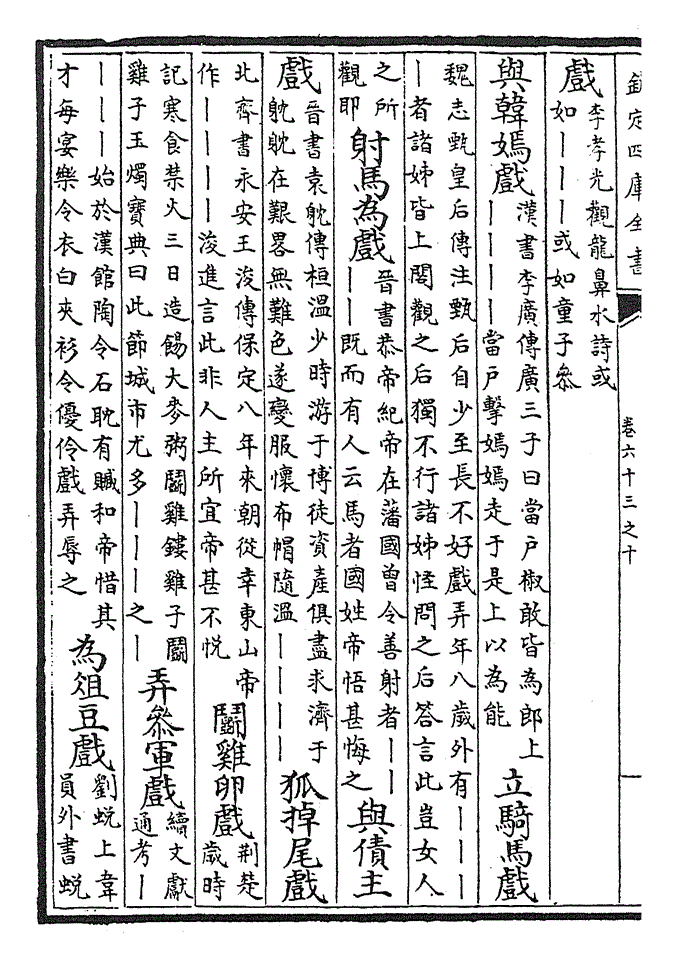 欽定四庫全書
卷六十三之十
戲
李孝光觀龍鼻水詩或
如｜｜｜或如童子叅
與韓嫣戲
漢書李廣傳廣三子曰當戶椒敢皆為郎上
｜｜｜｜當戶擊嫣嫣走于是上以為能
立騎馬戲
魏志甄皇后傳注甄后自少至長不好戲弄年八歲外有｜｜｜
｜者諸姊皆上閣觀之后獨不行諸姊怪問之后答言此豈女人
之所
觀即
射馬為戲
晉書恭帝紀帝在藩國曾令善射者｜｜
｜｜既而有人云馬者國姓帝悟甚悔之
與債主
戲
晉書袁躭傳桓溫少時游于博徒資產俱盡求濟于
躭躭在艱畧無難色遂變服懷布帽隨溫｜｜｜｜
狐掉尾戲
北齊書永安王浚傳保定八年來朝從幸東山帝
作｜｜｜｜浚進言此非人主所宜帝甚不悅
鬬雞卵戲
荆楚
歲時
記寒食禁火三日造餳大麥粥鬬雞鏤雞子鬬
雞子玉燭寶典曰此節城市尤多｜｜｜之｜
弄叅軍戲
續文獻
通考｜
｜｜｜始於漢館陶令石耽有贓和帝惜其
才每宴樂令衣白夾衫令優伶戲弄辱之
為俎豆戲
劉蛻上韋
員外書蛻